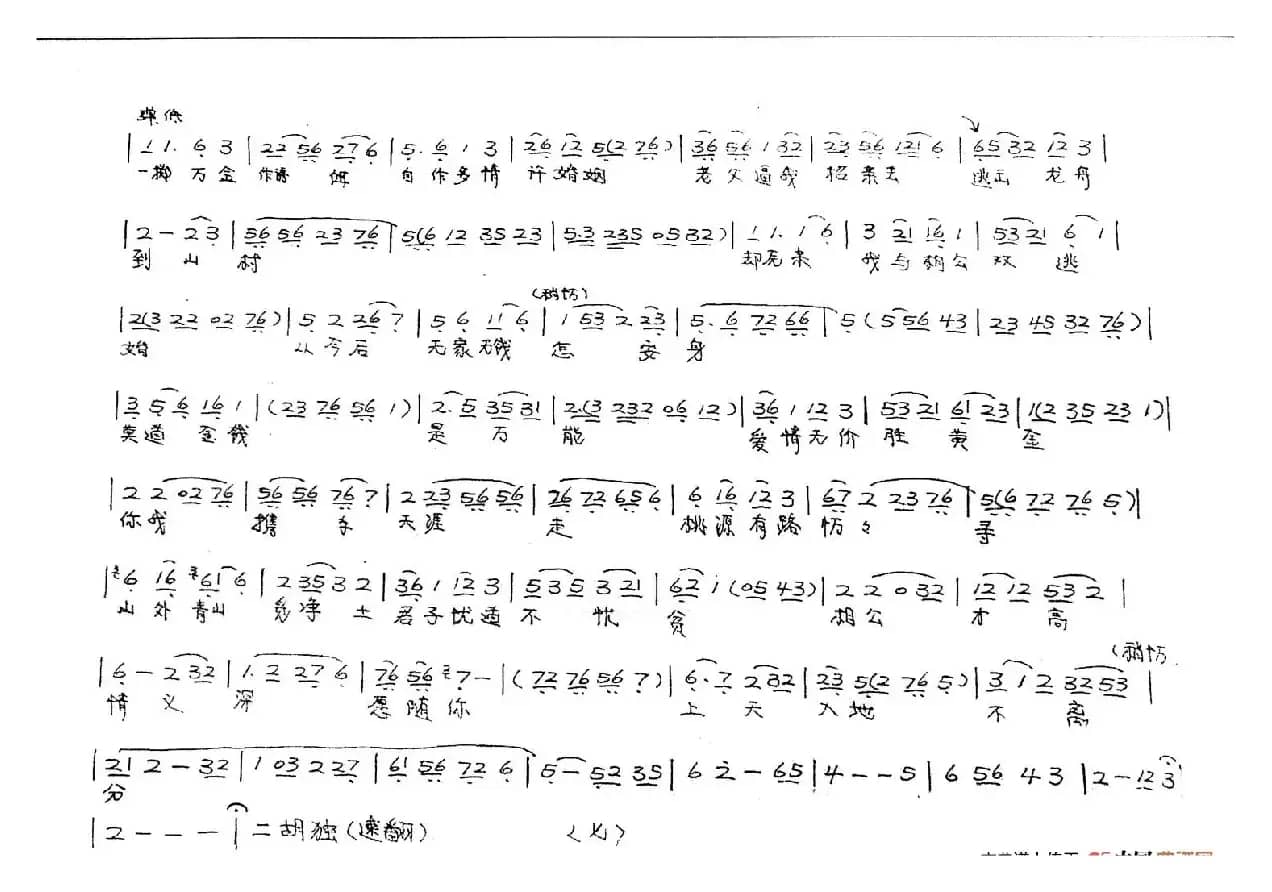 | 1 1. 6 3 | 22 56 27 6 | 5. 6 1 3 | 26 12 5(2 76) | 36 56 1 32 | 23 56 121 6 | 65 32 12 3 |
一掷万金 作 自作多情 许婚姻 老父逼我 招亲去 逃出 龙舟
| 2 - 2 3 | 56 56 23 76 | 5(6 12 35 23 | 5.3 235 05 32) | 1 1. 1 6 | 3 21 16 1 | 53 21 6 1 |
到 山 村 却死来 我与相公 双 逃
(稍忉)
| 2(3 22 02 76) | 5 2 26 7 | 5 6 11 6 | 1 53 2 23 | 5. 6 72 66 | 5 (5 56 43 | 23 45 32 76) |
婚 从今后 无家 怎 安 身
| 3 5 6 16 1 | (23 76 56 1) | 2. 5 35 31 | 2.(3 232 06 12) | 36 1 12 3 | 53 21 61 23 | 1(2 35 23 1) |
莫道金钱 是 万 能 爱情无价 胜 黄 金
| 2 2 02 76 | 56 56 76 7 | 2 23 56 56 | 26 72 65 6 | 6 16 12 3 | 67 2 23 76 | 5(6 72 76 5) |
你我 携 手 天涯 走 桃源有路 忉々 寻
| 6 16 61 6 | 2 35 3 2 | 36 1 12 3 | 5 35 3 21 | 62 1 (05 43) | 2 2 0 32 | 12 12 53 2 |
山 外 青山 多净 土 君子忧道 不 忧 贫 相公 才 高
(稍忉
| 6 - 2 32 | 1. 2 27 6 | 76 56 7 - | (72 76 56 7) | 6. 7 2 32 | 23 5(2 76 5) | 3 1 2 32 53 |
情 义 深 愿随你 上 天 入地 不 离
| 21 2 - 32 | 1 03 2 27 | 61 56 72 6 | 5 - 52 35 | 6 2 - 65 | 4 - - 5 | 6 56 4 3 | 2 - 12 3
分
| 2 - - - | 二胡独(速翻) (七)